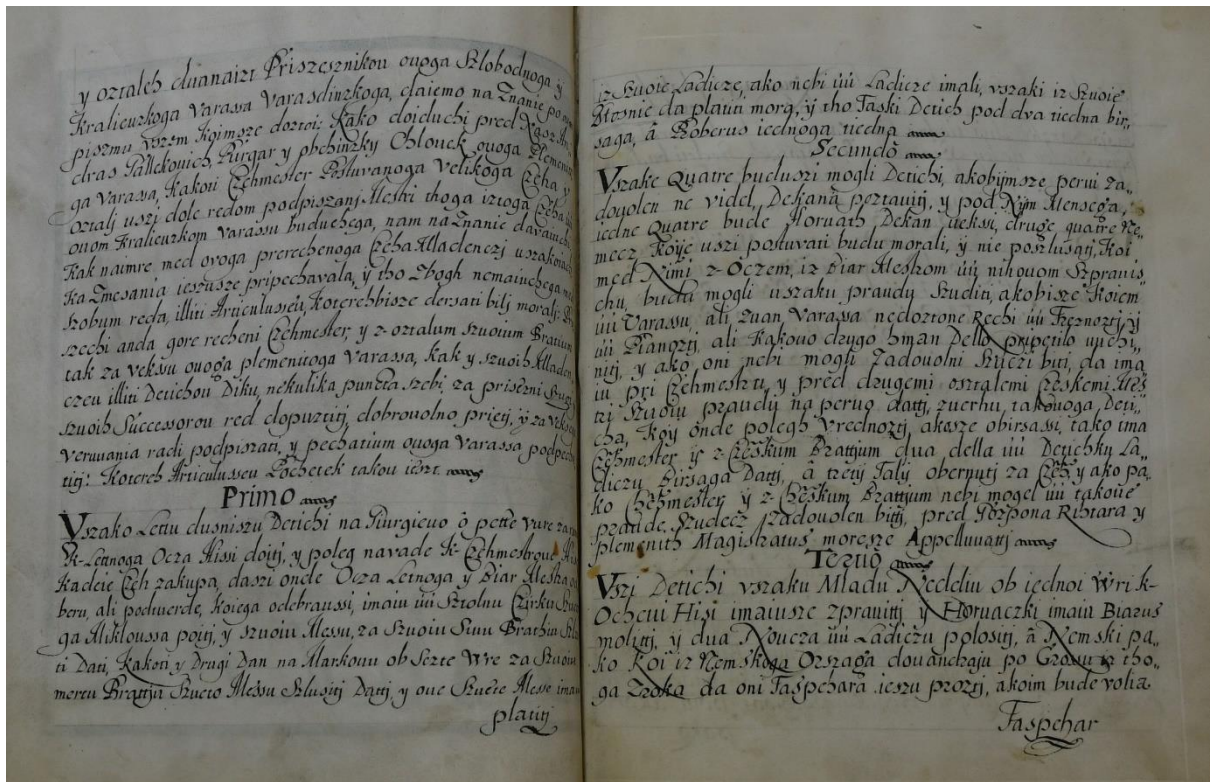 y oztaleh duanaizt Priszesznikou ouoga Szlobodnoga, y
Kralieuzkoga Varassa Varasdinzkoga, daiemo na Znanie po
piszmu vszem Kojmsze doztoi: Kako doiduchi pred Nasz
dras Pallekovich, Purgar y pbchinzky Chlouek ouoga Plemeni
ga Varassa, Kakoti Czehmester Postuvanoga Velikoga Czeha, y
oztali uszi dole redom podpiszanj Mestri thoga iztoga Czeha
ouom Kralieuzkom Varassu buduchega, nam na Znanie davaiuchi
Kak naimre med ovoga prerechenoga Czeha Mladenczj uszakoiach
ka Zmesania ieszusze pripechavala, y tho Zbogh nemaiuchega
szobum reda, illiti Articulusseu, Koterehbisze dersati bilj moralj:
szechi anda gore recheni Czehmester, y z-oztalum Szvoium Bratium
tak za veksu ouoga plemenitoga varassa, kak y szuoih Mladen
czeu illiti Detichou Diku, nekulika puncta szebi, za priszesni
szuoih Successorou red dopuztitj, dobrouolno prietj, y za veksega
veruvania radi podpiszati, y pechatium ouoga Varassa podpech
titj: Kotereh Articulusseu Pochetek takou ieszt.
Primo
Vszako Letiu dusniszu Detichi na Jurgieuo o pette vure
K-Letnoga Ocza Hissi dojtj, y poleg navade K-Czehmestrou,
kadeie Czeh zakupa, daszi onde Ocza Letnoga y Biar Mestra
beru, ali podtuerde, koiega odebraussi, imaiu uu Sztolnu Czirku
ga Mikloussa pojtj, y szuoiu Messu, za Szuoiu Sziuu Brathiu
ti Dati, Kakoti y Drugi Dan na Markouu ob Sezte Wre za Szuoiu
mertu Brattju Szueto Messu Szlusitj Dattj, y oue Szuete Messe imaiu
plattj
iz Szuoie Ladicze, ako nebi uu Ladicze imali, vszaki iz Szuoie
Mosnie da platti mora, y tho Taski Detich pod dva tiedna bir„
saga, a Poberus iednoga tiedna
Secundo
Vszake Quatre buduszi mogli Detichi, akobijmsze pervi za„
douolen ne videl, Dekana poztavitj, y pod Nyim Mensega,
iedne Quatre bude Horuath Dekan veksi, druge quatre Ne„
mecz Koije uszi postuvati budu morali, y nie poszlusatj, Koi
med Nimi z-Oczem, iz Biar Mestrom uu nihouom Szpravis
chu, budu mogli uszaku pravdu Szuditi, akobisze Koiem
uu Varassu, ali zuan Varassa nedoztone Rechi uu Treznoztj, y
uu Pianoztj, ali Kakouo drugo hman Dello pripetilo uchi„
nitj, y ako oni nebi mogli Zadouolni Szuczi biti, da ima
iu pri Czehmestru, y pred drugemi oztalemi Czeskemi Mes
tri Szuoiu pravdu na pervo dattj, zverhu takouoga Deti„
cha, Koy onde polegh Vrednoztj, akasze obirsasi, tako ima
Czehmester iz z-Czeskum Brattjum dua della uu Detichku La
diczu Birsaga Dattj, a tretij Talj obernutj za Czeh, y ako pa„
ko Czehmester y z-Czeskum Brattjum nebi mogel uu takoue
pravde Szudecz zadouolen bitj, pred Gozpona Rihtara y
plemenith Magistratus moresze Appelluuatj
Tertio
Vszi Detichi vszaku Mladu Nedeliu ob iednoi Wri k-
Ochevi Hisi imaiusze zpravitj y Horuaczki imaiu Biarus
molitj, y dua Noucza uu Ladiczu polositj, a Nemski pa„
ko Koi iz Nemskoga Orszaga douandraju po Grossu iz tho„
ga Zroka da oni Taspchara ieszu proztj, akoim bude volia
Taspchar